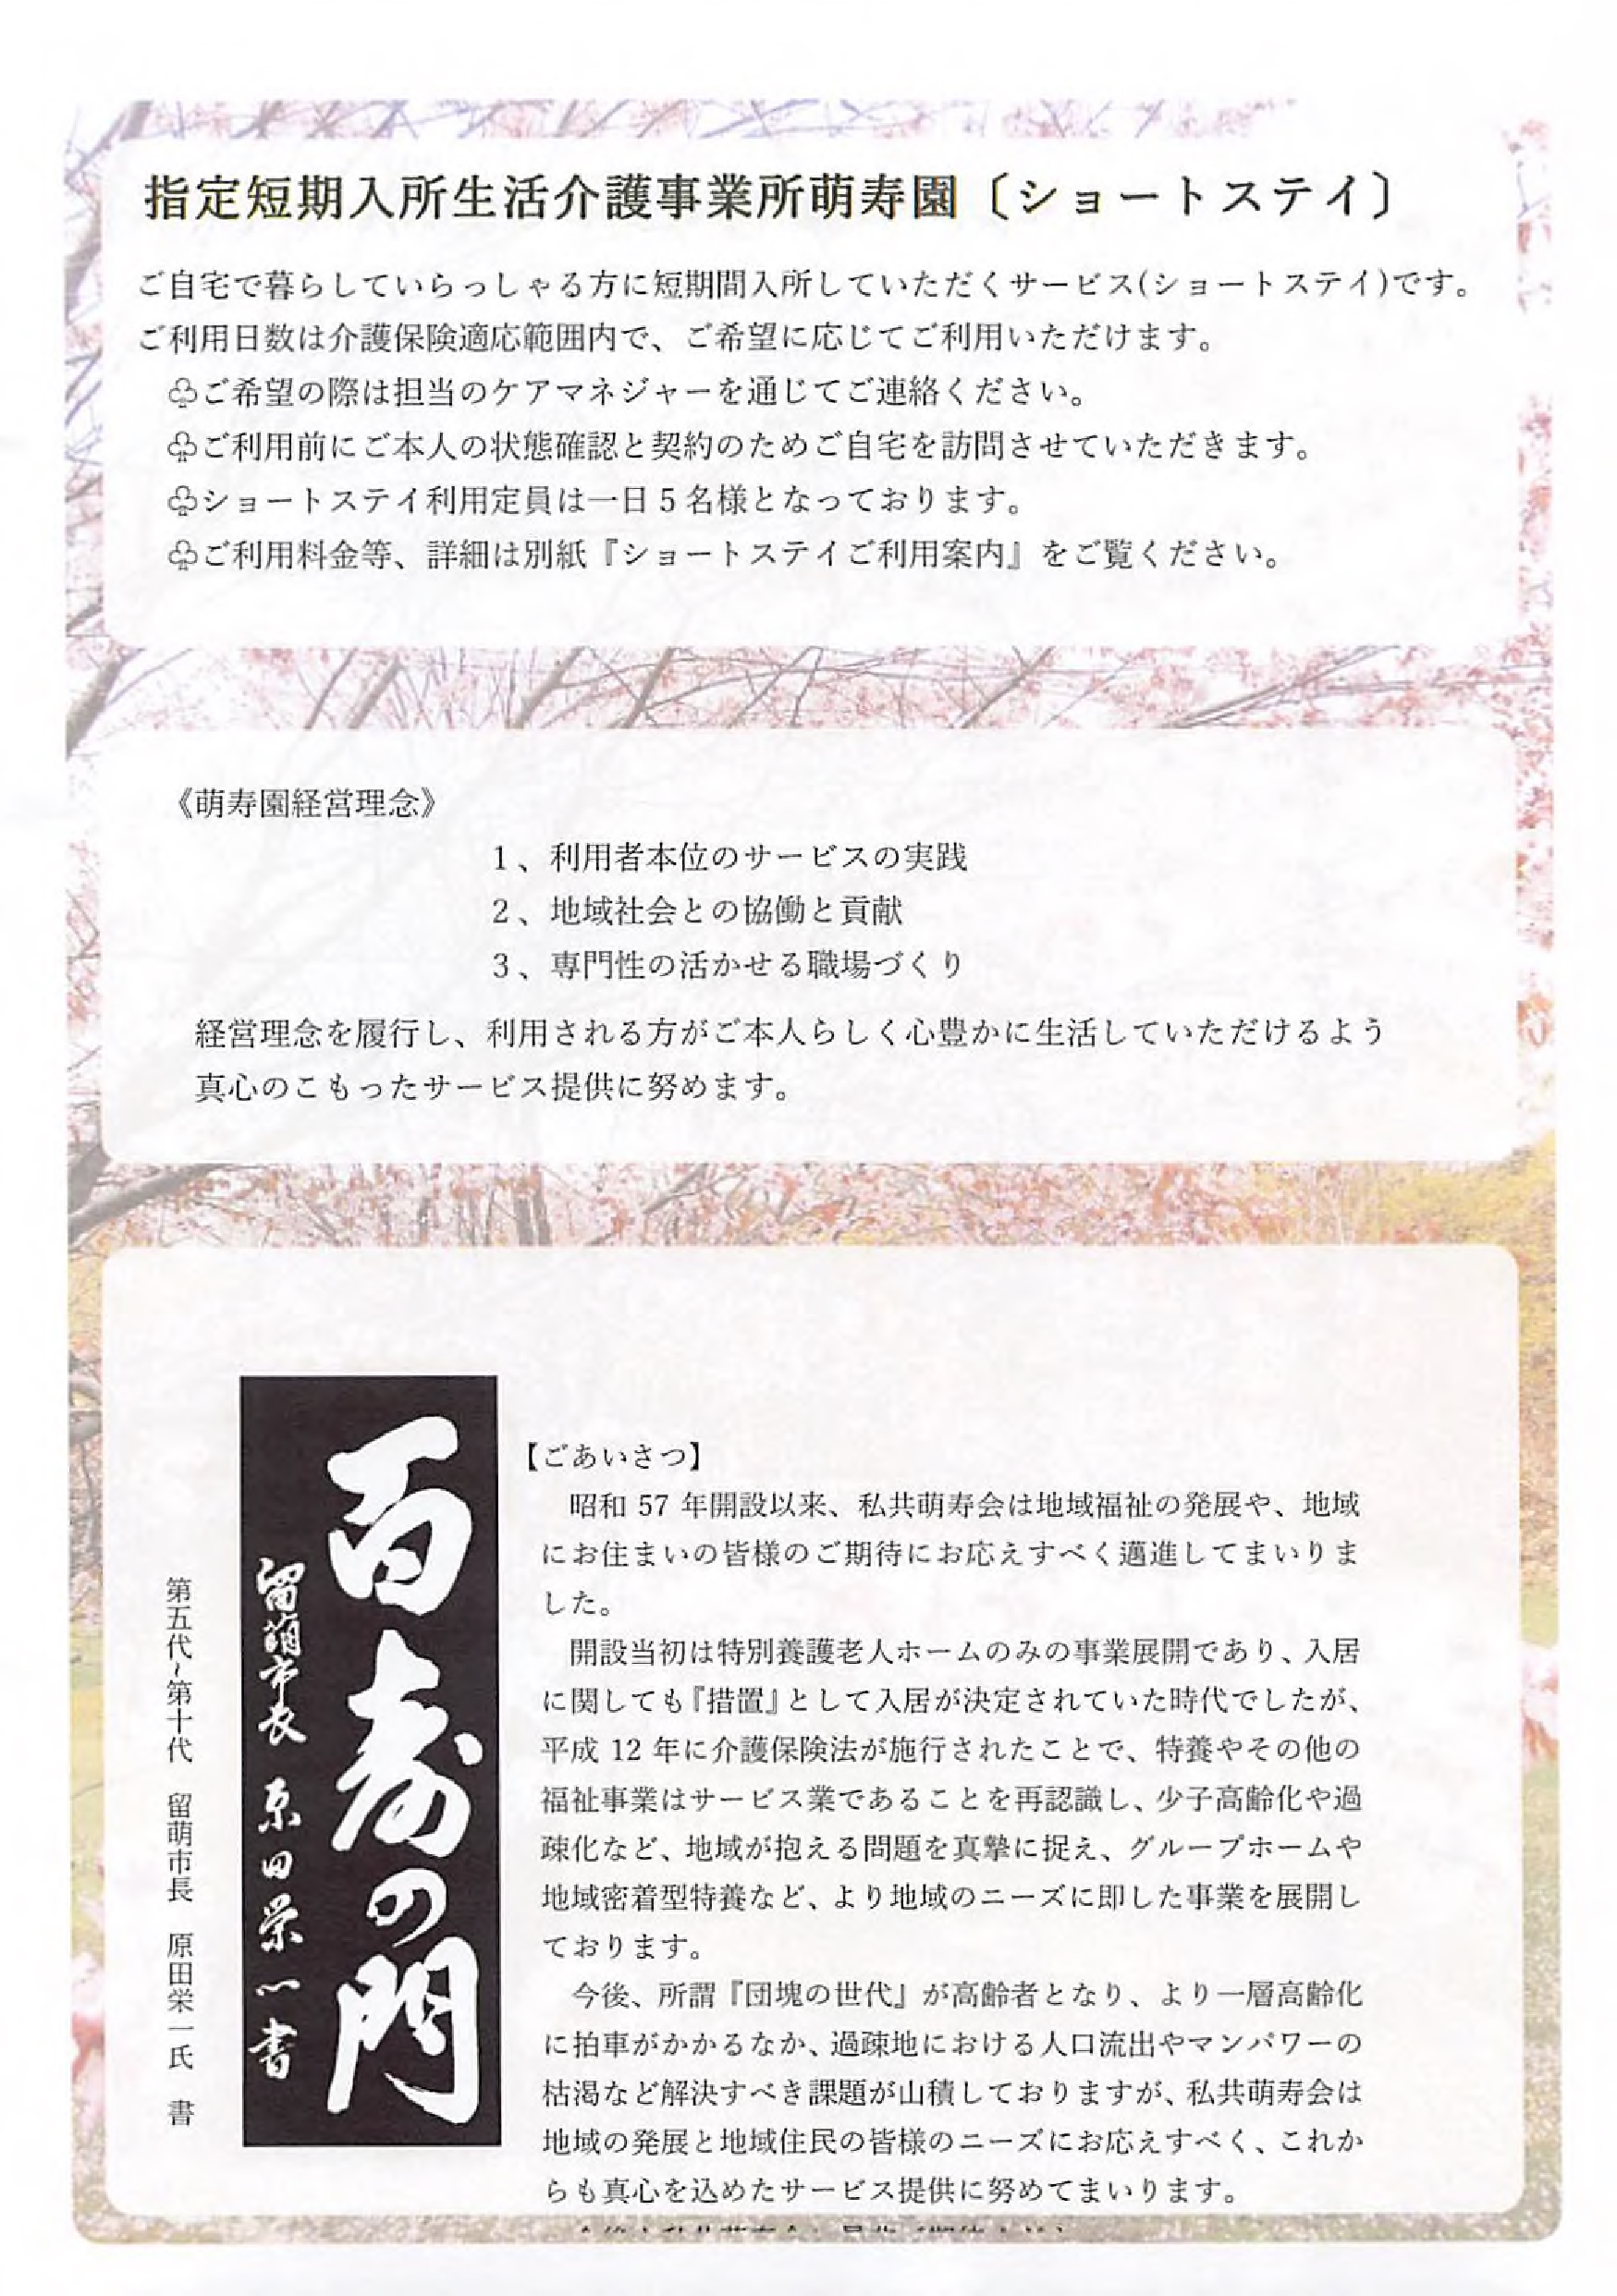 指定短期入所生活介護事業所萌寿園〔ショートステイ〕
ご自宅で暮らしていらっしゃる方に短期間入所していただくサービス(ショートステイ)です。
ご利用日数は介護保険適応範囲内で、ご希望に応じてご利用いただけます。
♧ご希望の際は担当のケアマネジャーを通じてご連絡ください。
♧ご利用前にご本人の状態確認と契約のためご自宅を訪問させていただきます。
♧ショートステイ利用定員は一日5名様となっております。
♧ご利用料金等、詳細は別紙『ショートステイご利用案内』をご覧ください。
《萌寿園経営理念》
1、利用者本位のサービスの実践
2、地域社会との協働と貢献
3、専門性の活かせる職場づくり
経営理念を履行し、利用される方がご本人らしく心豊かに生活していただけるよう
真心のこもったサービス提供に努めます。
百寿の門
留萌市長 原田栄一書
第五代~第十代 留萌市長 原田栄一氏 書
【ごあいさつ】
昭和 57 年開設以来、私共萌寿会は地域福祉の発展や、地域
にお住まいの皆様のご期待にお応えすべく邁進してまいりま
した。
開設当初は特別養護老人ホームのみの事業展開であり、入居
に関しても『措置』として入居が決定されていた時代でしたが、
平成 12 年に介護保険法が施行されたことで、特養やその他の
福祉事業はサービス業であることを再認識し、少子高齢化や過
疎化など、地域が抱える問題を真摯に捉え、グループホームや
地域密着型特養など、より地域のニーズに即した事業を展開し
ております。
今後、所謂『団塊の世代』が高齢者となり、より一層高齢化
に拍車がかかるなか、過疎地における人口流出やマンパワーの
枯渇など解決すべき課題が山積しておりますが、私共萌寿会は
地域の発展と地域住民の皆様のニーズにお応えすべく、これか
らも真心を込めたサービス提供に努めてまいります。